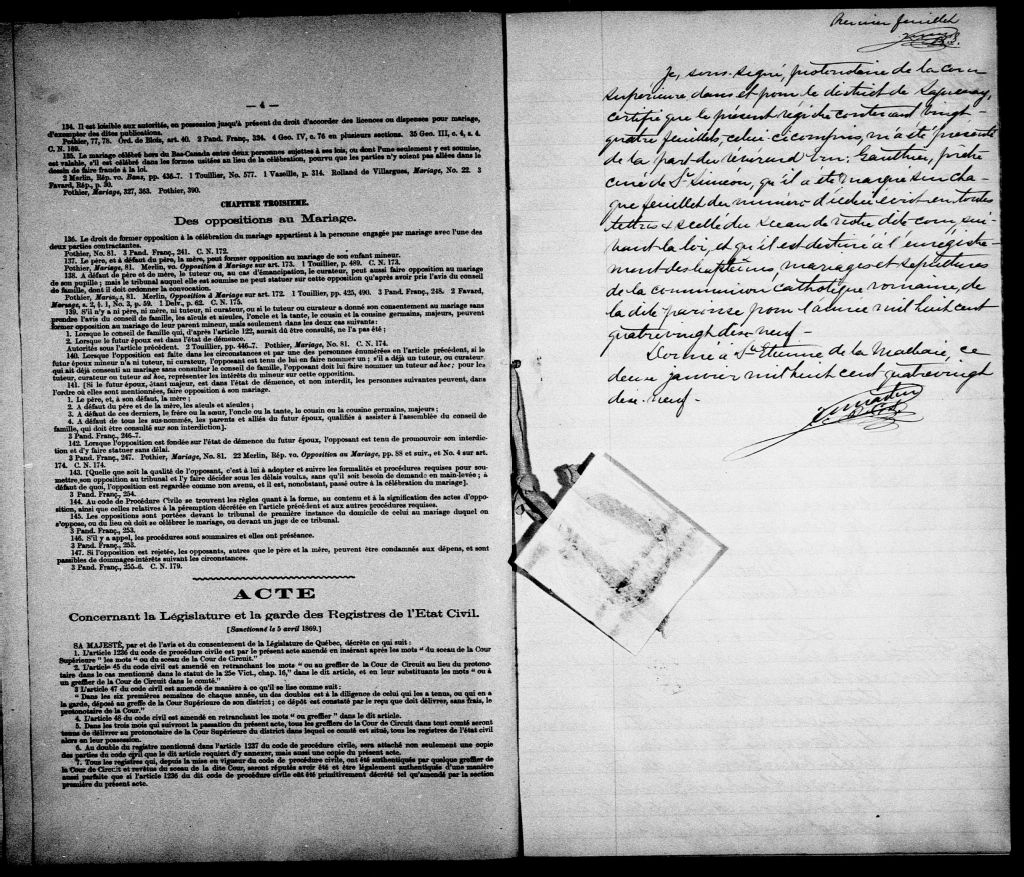 — 4 —
134. Il est loisible aux autorités, en possession jusqu'à présent du droit d'accorder des licences ou dispenses pour mariage,
d'exempter des dites publications.
Pothier, 77, 78. Ord. de Blois, art. 40. 2 Pand. Franç., 334. 4 Geo. IV, c. 76 en plusieurs sections. 35 Geo. III, c. 4, s. 4.
C. N. 169.
135. Le mariage célébré hors du Bas-Canada entre deux personnes sujettes à ses lois, ou dont l'une seulement y est soumise,
est valable, s'il est célébré dans les formes usitées au lieu de la célébration, pourvu que les parties n'y soient pas allées dans le
dessin de faire fraude à la loi.
2 Merlin, Rép. vo. Bans, pp. 436-7. 1 Touillier, No. 577. 1 Vazeille, p. 314. Rolland de Villargues, Mariage, No. 22. 3
Favard, Rép., p. 50.
Pothier, Mariage, 327, 363. Pothier, 390.
CHAPITRE TROISIEME.
Des oppositions au Mariage.
136. Le droit de former opposition à la célébration du mariage appartient à la personne engagée par mariage avec l'une des
deux parties contractantes.
Pothier, No. 81. 3 Pand. Franç., 241. C. N. 172.
137. Le père, et à défaut du père, la mère, peut former opposition au mariage de son enfant mineur.
Pothier, Mariage, 81. Merlin, vo. Opposition à Mariage sur art. 173. 1 Touillier, p. 489. C. N. 173.
138. A défaut de père et de mère, le tuteur ou, au cas d'émancipation, le curateur, peut aussi faire opposition au mariage
de son pupille; mais le tribunal auquel elle est soumise ne peut statuer sur cette opposition qu'après avoir pris l'avis du conseil
de famille, dont il doit ordonner la convocation.
Pothier, Mariage, 81. Merlin, Opposition à Mariage sur art. 172. 1 Touillier, pp. 425, 490. 3 Pand. Franç., 248. 2 Favard,
Mariage, s. 2, § 1, No. 3, p. 59. 1 Delv., p. 62. C. N. 175.
139. S'il n'y a ni père, ni mère, ni tuteur, ni curateur, ou si le tuteur ou curateur a donné son consentement au mariage sans
prendre l'avis du conseil de famille, les aïeuls et aïeules, l'oncle et la tante, le cousin et la cousine germains, majeurs, peuvent
former opposition au mariage de leur parent mineur, mais seulement dans les deux cas suivants:
1. Lorsque le conseil de famille qui, d'après l'article 122, aurait dû être consulté, ne l'a pas été;
2. Lorsque le futur époux est dans l'état de démence.
Autorités sous l'article précédent. 2 Touillier, pp. 446-7. Pothier, Mariage, No. 81. C. N. 174.
140. Lorsque l'opposition est faite dans les circonstances et par une des personnes énumérées en l'article précédent, si le
futur époux mineur n'a ni tuteur, ni curateur, l'opposant est tenu de lui en faire nommer un; s'il a déjà un tuteur, ou curateur
qui ait déjà consenti au mariage sans consulter le conseil de famille, l'opposant doit lui faire nommer un tuteur ad hoc; pour les
tuteur, curateur ou tuteur ad hoc, représenter les intérêts du mineur sur cette opposition.
141. [Si le futur époux, étant majeur, est dans l'état de démence, et non interdit, les personnes suivantes peuvent, dans
l'ordre où elles sont mentionnées, faire opposition à son mariage.
1. Le père, et, à son défaut, la mère;
2. A défaut du père et de la mère, les aïeuls et aïeules;
3. A défaut de ces derniers, le frère ou la sœur, l'oncle ou la tante, le cousin ou la cousine germains, majeurs;
4. A défaut de tous les sus-nommés, les parents et alliés du futur époux, qualifiés à assister à l'assemblée du conseil de
famille, qui doit être consulté sur son interdiction].
3 Pand. Franç., 246-7.
142. Lorsque l'opposition est fondée sur l'état de démence du futur époux, l'opposant est tenu de promouvoir son interdic-
tion et d'y faire statuer sans délai.
3 Pand. Franç., 247. Pothier, Mariage, No. 81. 22 Merlin, Rép. vo. Opposition au Mariage, pp. 88 et suiv., et No. 4 sur art.
174. C. N. 174.
143. [Quelle que soit la qualité de l'opposant, c'est à lui à adopter et suivre les formalités et procédures requises pour sou-
mettre son opposition au tribunal et l'y faire décider sous les délais voulus, sans qu'il soit besoin de demande en main-levée; à
défaut de quoi, l'opposition est regardée comme non avenue, et il est, nonobstant, passé outre à la célébration du mariage].
3 Pand. Franç., 254.
144. Au code de Procédure Civile se trouvent les règles quant à la forme, au contenu et à la signification des actes d'oppo-
sition, ainsi que celles relatives à la péremption décrétée en l'article précédent et aux autres procédures requises.
145. Les oppositions sont portées devant le tribunal de première instance du domicile de celui au mariage duquel on
s'oppose, ou du lieu où doit se célébrer le mariage, ou devant un juge de ce tribunal.
3 Pand. Franç., 253.
146. S'il y a appel, les procédures sont sommaires et elles ont préséance.
3 Pand. Franç., 253.
147. Si l'opposition est rejetée, les opposants, autres que le père et la mère, peuvent être condamnés aux dépens, et sont
passibles de dommages-intérêts suivant les circonstances.
3 Pand. Franç., 255-6. C. N. 179.
ACTE
Concernant la Législature et la garde des Registres de l'Etat Civil.
[Sanctionné le 5 avril 1869.]
SA MAJESTÉ, par et de l'avis et du consentement de la Législature de Québec, décrète ce qui suit:
1. L'article 1236 du code de procédure civile est par le présent acte amendé en insérant après les mots "du sceau de la Cour
Supérieure" les mots "ou du sceau de la Cour de Circuit."
2. L'article 45 du code civil est amendé en retranchant les mots "ou au greffier de la Cour de Circuit au lieu du protono-
taire dans le cas mentionné dans le statut de la 25e Vict., chap. 16," dans le dit article, et en leur substituant les mots "ou à
un greffier de la Cour de Circuit dans le comté."
3 L'article 47 du code civil est amendé de manière à ce qu'il se lise comme suit:
"Dans les six premières semaines de chaque année, un des doubles est à la diligence de celui qui les a tenus, ou qui en a
la garde, déposé au greffe de la Cour Supérieure de son district; ce dépôt est constaté par le reçu que doit délivrer, sans frais, le
protonotaire de la Cour."
4. L'article 48 du code civil est amendé en retranchant les mots "ou greffier" dans le dit article.
5. Dans les trois mois qui suivront la passation du présent acte, tous les greffiers de la Cour de Circuit dans tout comté seront
tenus de délivrer au protonotaire de la Cour Supérieure du district dans lequel ce comté est situé, tous les registres de l'état civil
alors en leur possession.
6. Au double du registre mentionné dans l'article 1237 du code de procédure civile, sera attaché non seulement une copie
des parties du code civil que le dit article requiert d'y annexer, mais aussi une copie du présent acte.
7. Tous les registres qui, depuis la mise en vigueur du code de procédure civile, ont été authentiqués par quelque greffier de
la Cour de Circuit et revêtus du sceau de la dite Cour, seront réputés avoir été et être légalement authentiqués d'une manière
aussi parfaite que si l'article 1236 du dit code de procédure civile eût été primitivement décrété tel qu'amendé par la section
première du présent acte.
Premier feuillet
Je, sous-signé, protonotaire de la cour
supérieure dans et pour le district de Saguenay,
certifie que le présent régistre contenant vingt-
quatre feuillets, celui-ci compris, m'a été présenté
de la part du révérend Gauthier, prêtre
curé de St. Siméon, qu'il a été marqué sur cha-
que feuillet du numéro d'icelui écrit en toutes
lettres & scellé du sceau de notre dite cour, sui-
vant la loi, et qu'il est destiné à l'enrégistre-
ment des baptêmes, mariages et sépultures
de la communion catholique romaine, de
la dite paroisse pour l'année mil huit cent
quatrevingt dix-neuf.
Donné à St. Etienne de la Malbaie, ce
deux janvier mil huit cent quatrevingt
dix-neuf.